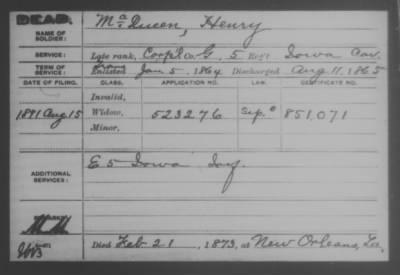 DEAD.
NAME OF SOLDIER:
McQueen, Henry
SERVICE:
Late rank, Corp'l Co. G, 5 Reg't Iowa Cav.
TERM OF SERVICE:
Enlisted Jan 5, 1864 Discharged Aug. 11, 1865
DATE OF FILING. CLASS. APPLICATION NO. LAW. CERTIFICATE NO.
Invalid,
1891 Aug 15 Widow, 523276 851,071
Minor,
ADDITIONAL SERVICES:
E 5 Iowa Inf.
Died Feb 21, 1873, at New Orleans, La.